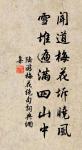 闻道梅花坼晓风
雪堆遍满四山中
陆游梅花绝句诗典湖
集